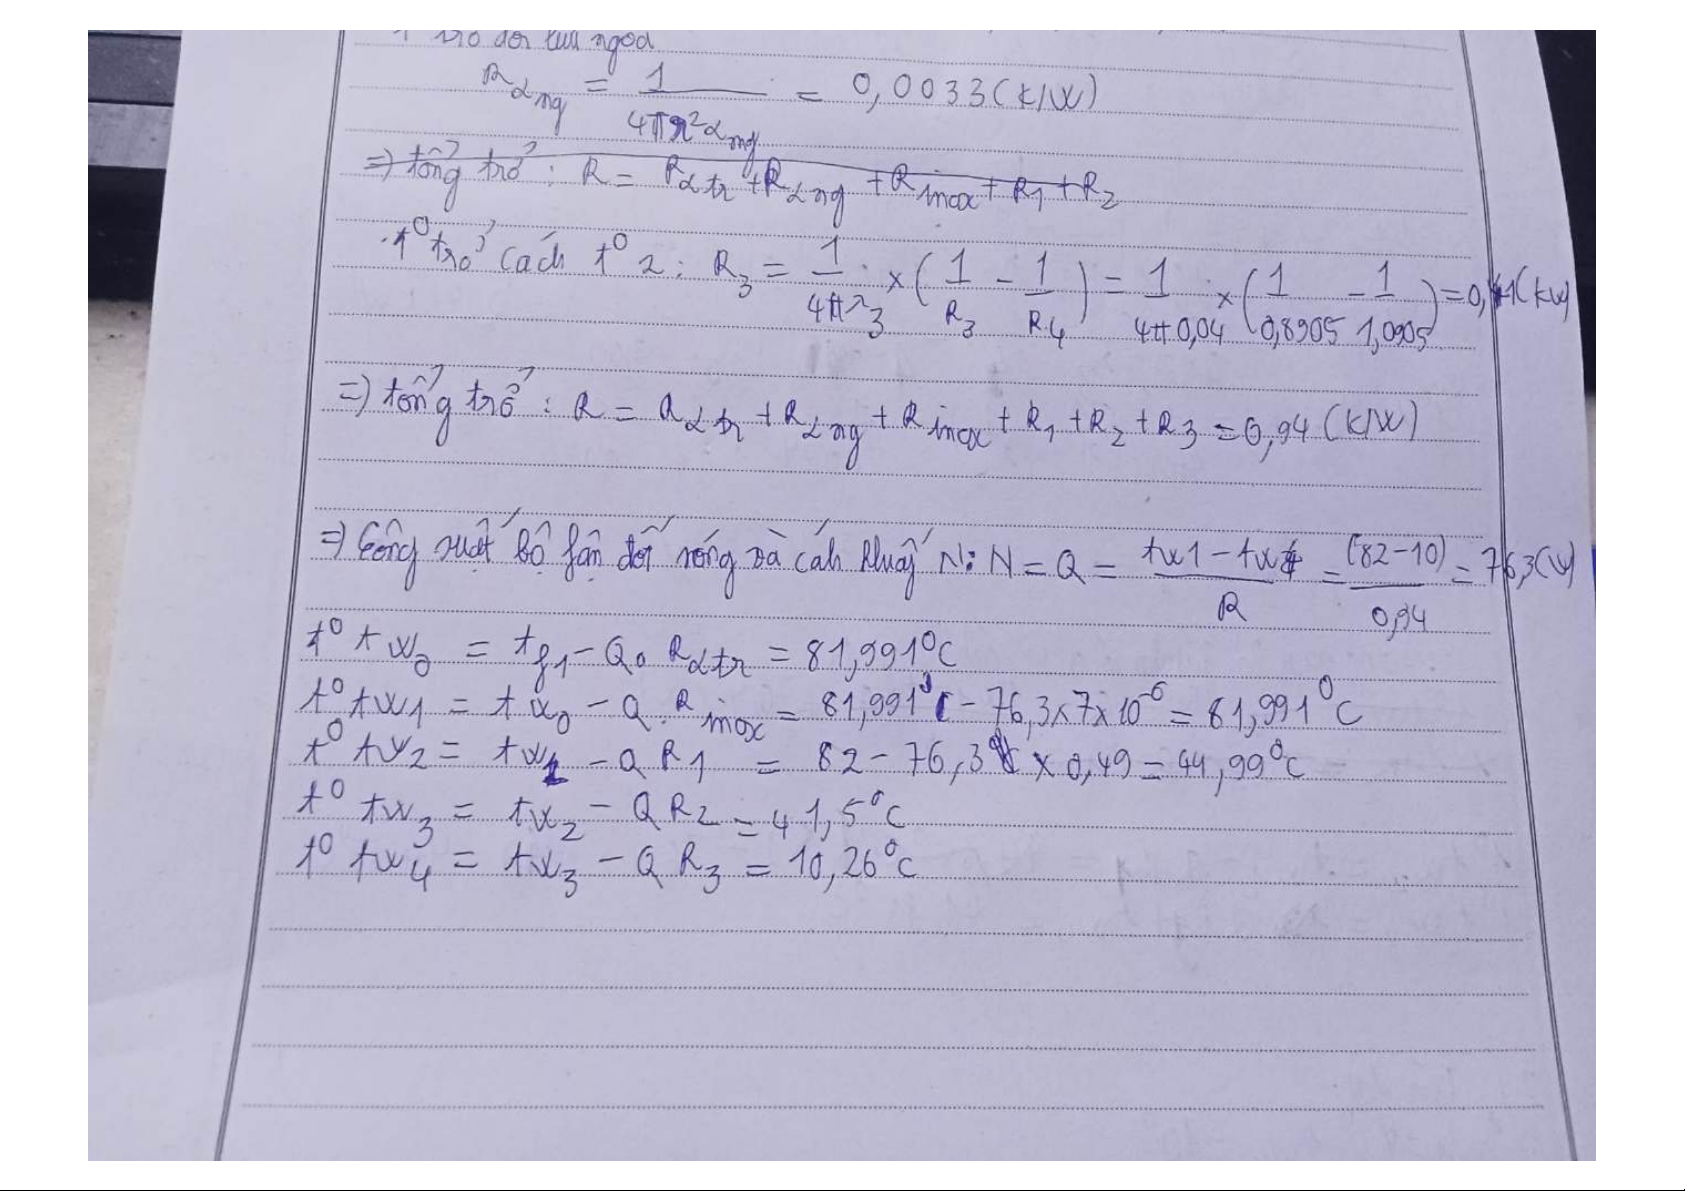 trở đối lưu ngoà
Rαng = 1 / 4πr²αng = 0,0033 (K/W)
=) tổng trở : R = Rαtr + Rαng + Rinox + R1 + R2
. t⁰ trở cách t⁰ 2 : R3 = 1 / 4πλ3 × ( 1 / R3 - 1 / R4 ) = 1 / 4π 0,04 × ( 1 / 0,8905 - 1 / 1,0905 ) = 0,41 (KW)
=) tổng trở : R = Rαtr + Rαng + Rinox + R1 + R2 + R3 = 0,94 (K/W)
=) Công suất bộ fận đốt nóng và cánh khuấy N : N = Q = tw1 - tw4 / R = (82-10) / 0,94 = 76,3 (W)
t⁰ tw0 = tf1 - Q. Rαtr = 81,991⁰C
t⁰ tw1 = tw0 - Q. Rinox = 81,991⁰C - 76,3 x 7 x 10⁻⁶ = 81,991⁰C
t⁰ tw2 = tw1 - Q R1 = 82 - 76,3 x 0,49 = 44,99⁰C
t⁰ tw3 = tw2 - Q R2 = 41,5⁰C
t⁰ tw4 = tw3 - Q R3 = 10,26⁰C